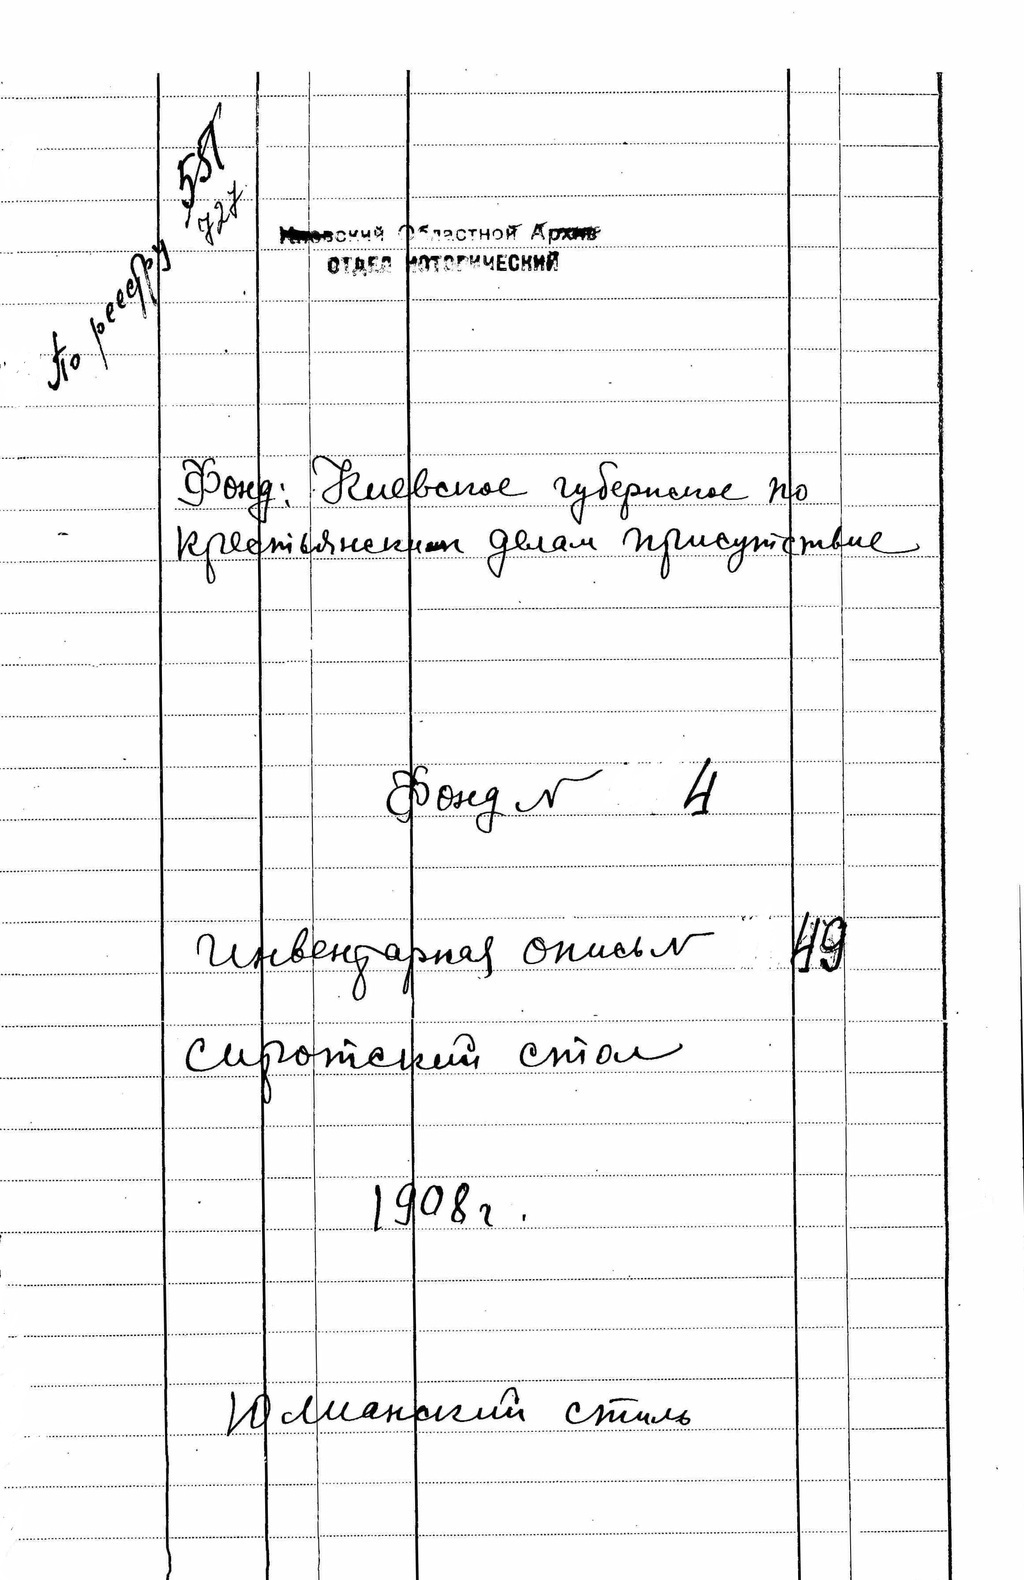 По реестру
727
Киевский Областной Архив
ОТДЕЛ ИСТОРИЧЕСКИЙ
Фонд: Киевское губернское по
крестьянским делам присутствие
Фонд N 4
Инвентарная опись N 49
Сиротский стол
1908 г.
Юлианский стиль